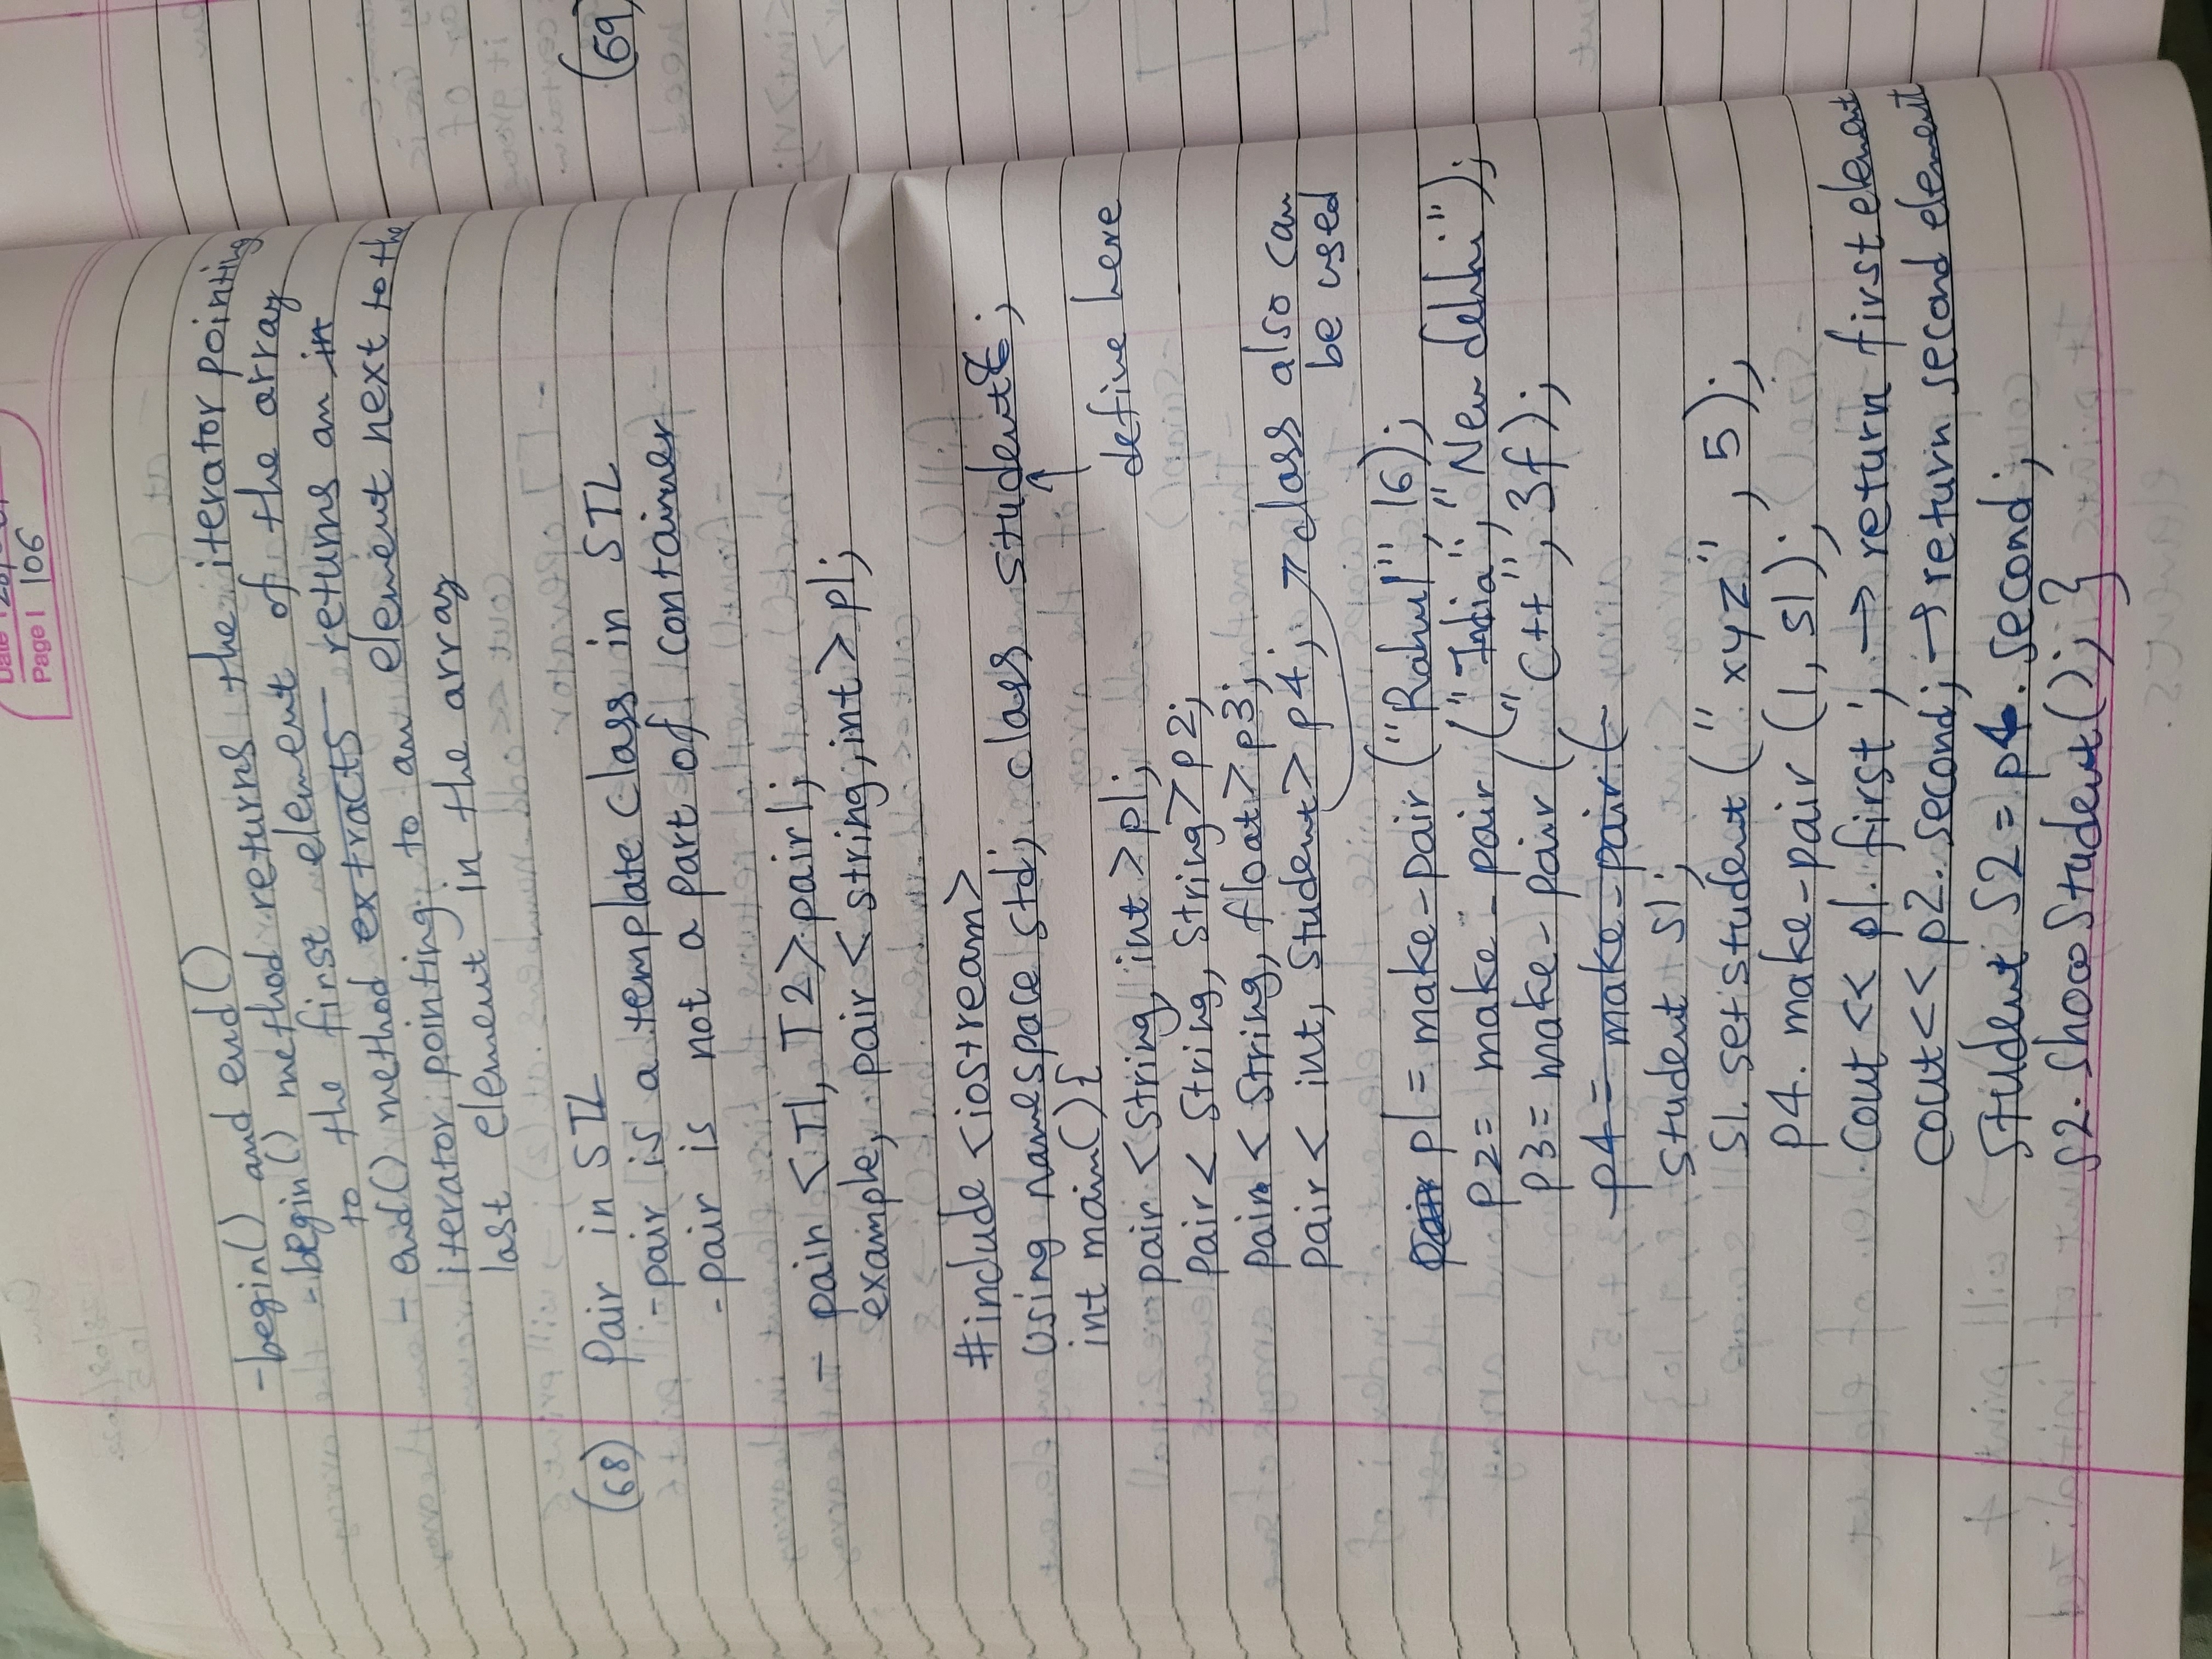 Page | 106
- begin() and end()
- begin() method returns the iterator pointing
to the first element of the array
- end() method extracts returns an in
iterator pointing to an element next to the
last element in the array
(68) Pair in STL
- pair is a template class in STL
- pair is not a part of container
- pair <T1, T2> pair1;
example, pair <string, int> p1;
#include <iostream>
using namespace std; class student{};
int main(){
define here
pair <string, int> p1;
pair< string, string> p2;
pair < string, float> p3;
pair < int, student> p4; → class also can
be used
pair p1 = make-pair ("Rahul", 16);
p2 = make-pair ("India", "New delhi");
p3 = make-pair ("C++", 3f);
p4 = make-pair (
student s1;
s1. setstudent ("xyz", 5);
p4. make-pair (1, s1);
cout << p1. first; → return first element
cout << p2. second; → return second element
student s2 = p4. second;
s2. show student(); }
(69)